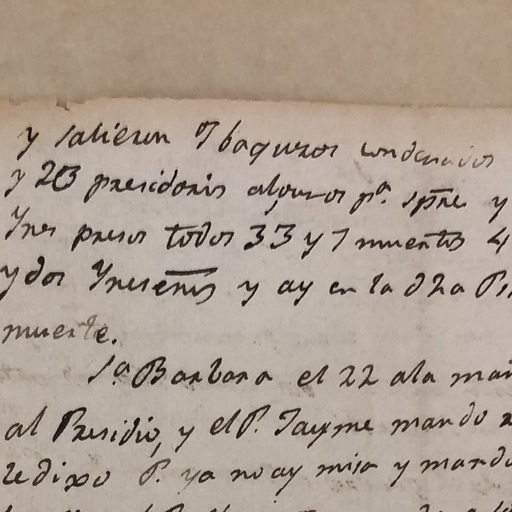 y salieron 7 baqueros condenados
y 23 presidarios algunos pa. spre y
Ynes presos todos 33 y 7 muertos 4
y dos Ynes y ay en la dha
muerte.
Sa. Barbara el 22 ala
al Presidio, y el P. Jayme mando
le dixo P. ya no ay misa y mando